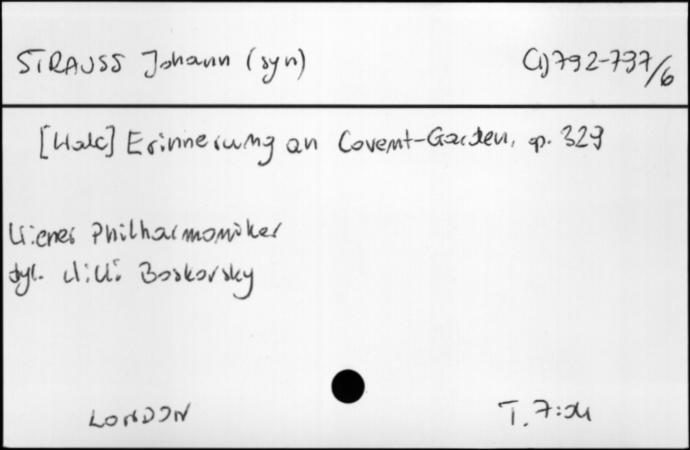 STRAUSS Johann (syn) CD 792-797/6
[Walc] Erinnerung an Covent-Garden, op. 329
Wiener Philharmoniker
dyr. Willi Boskovsky
LONDON T. 7:04